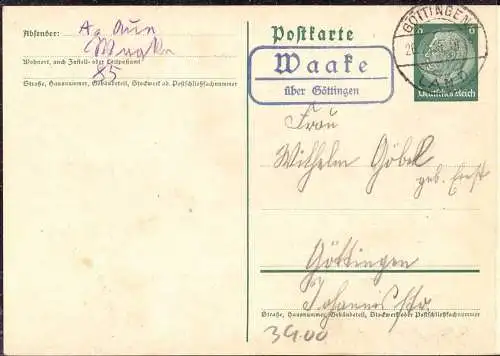 Absender:
Waake
Wohnort, auch Zustell- oder Leitpostamt
Straße, Hausnummer, Gebäudeteil, Stockwerk od. Postschließfachnummer
Postkarte
GÖTTINGEN
6 6
Deutsches Reich
Waake
über Göttingen
Frau
Wilhelm Göbel
geb. Ernst
Göttingen
Johannisstr.
Straße, Hausnummer, Gebäudeteil, Stockwerk oder Postschließfachnummer
3400